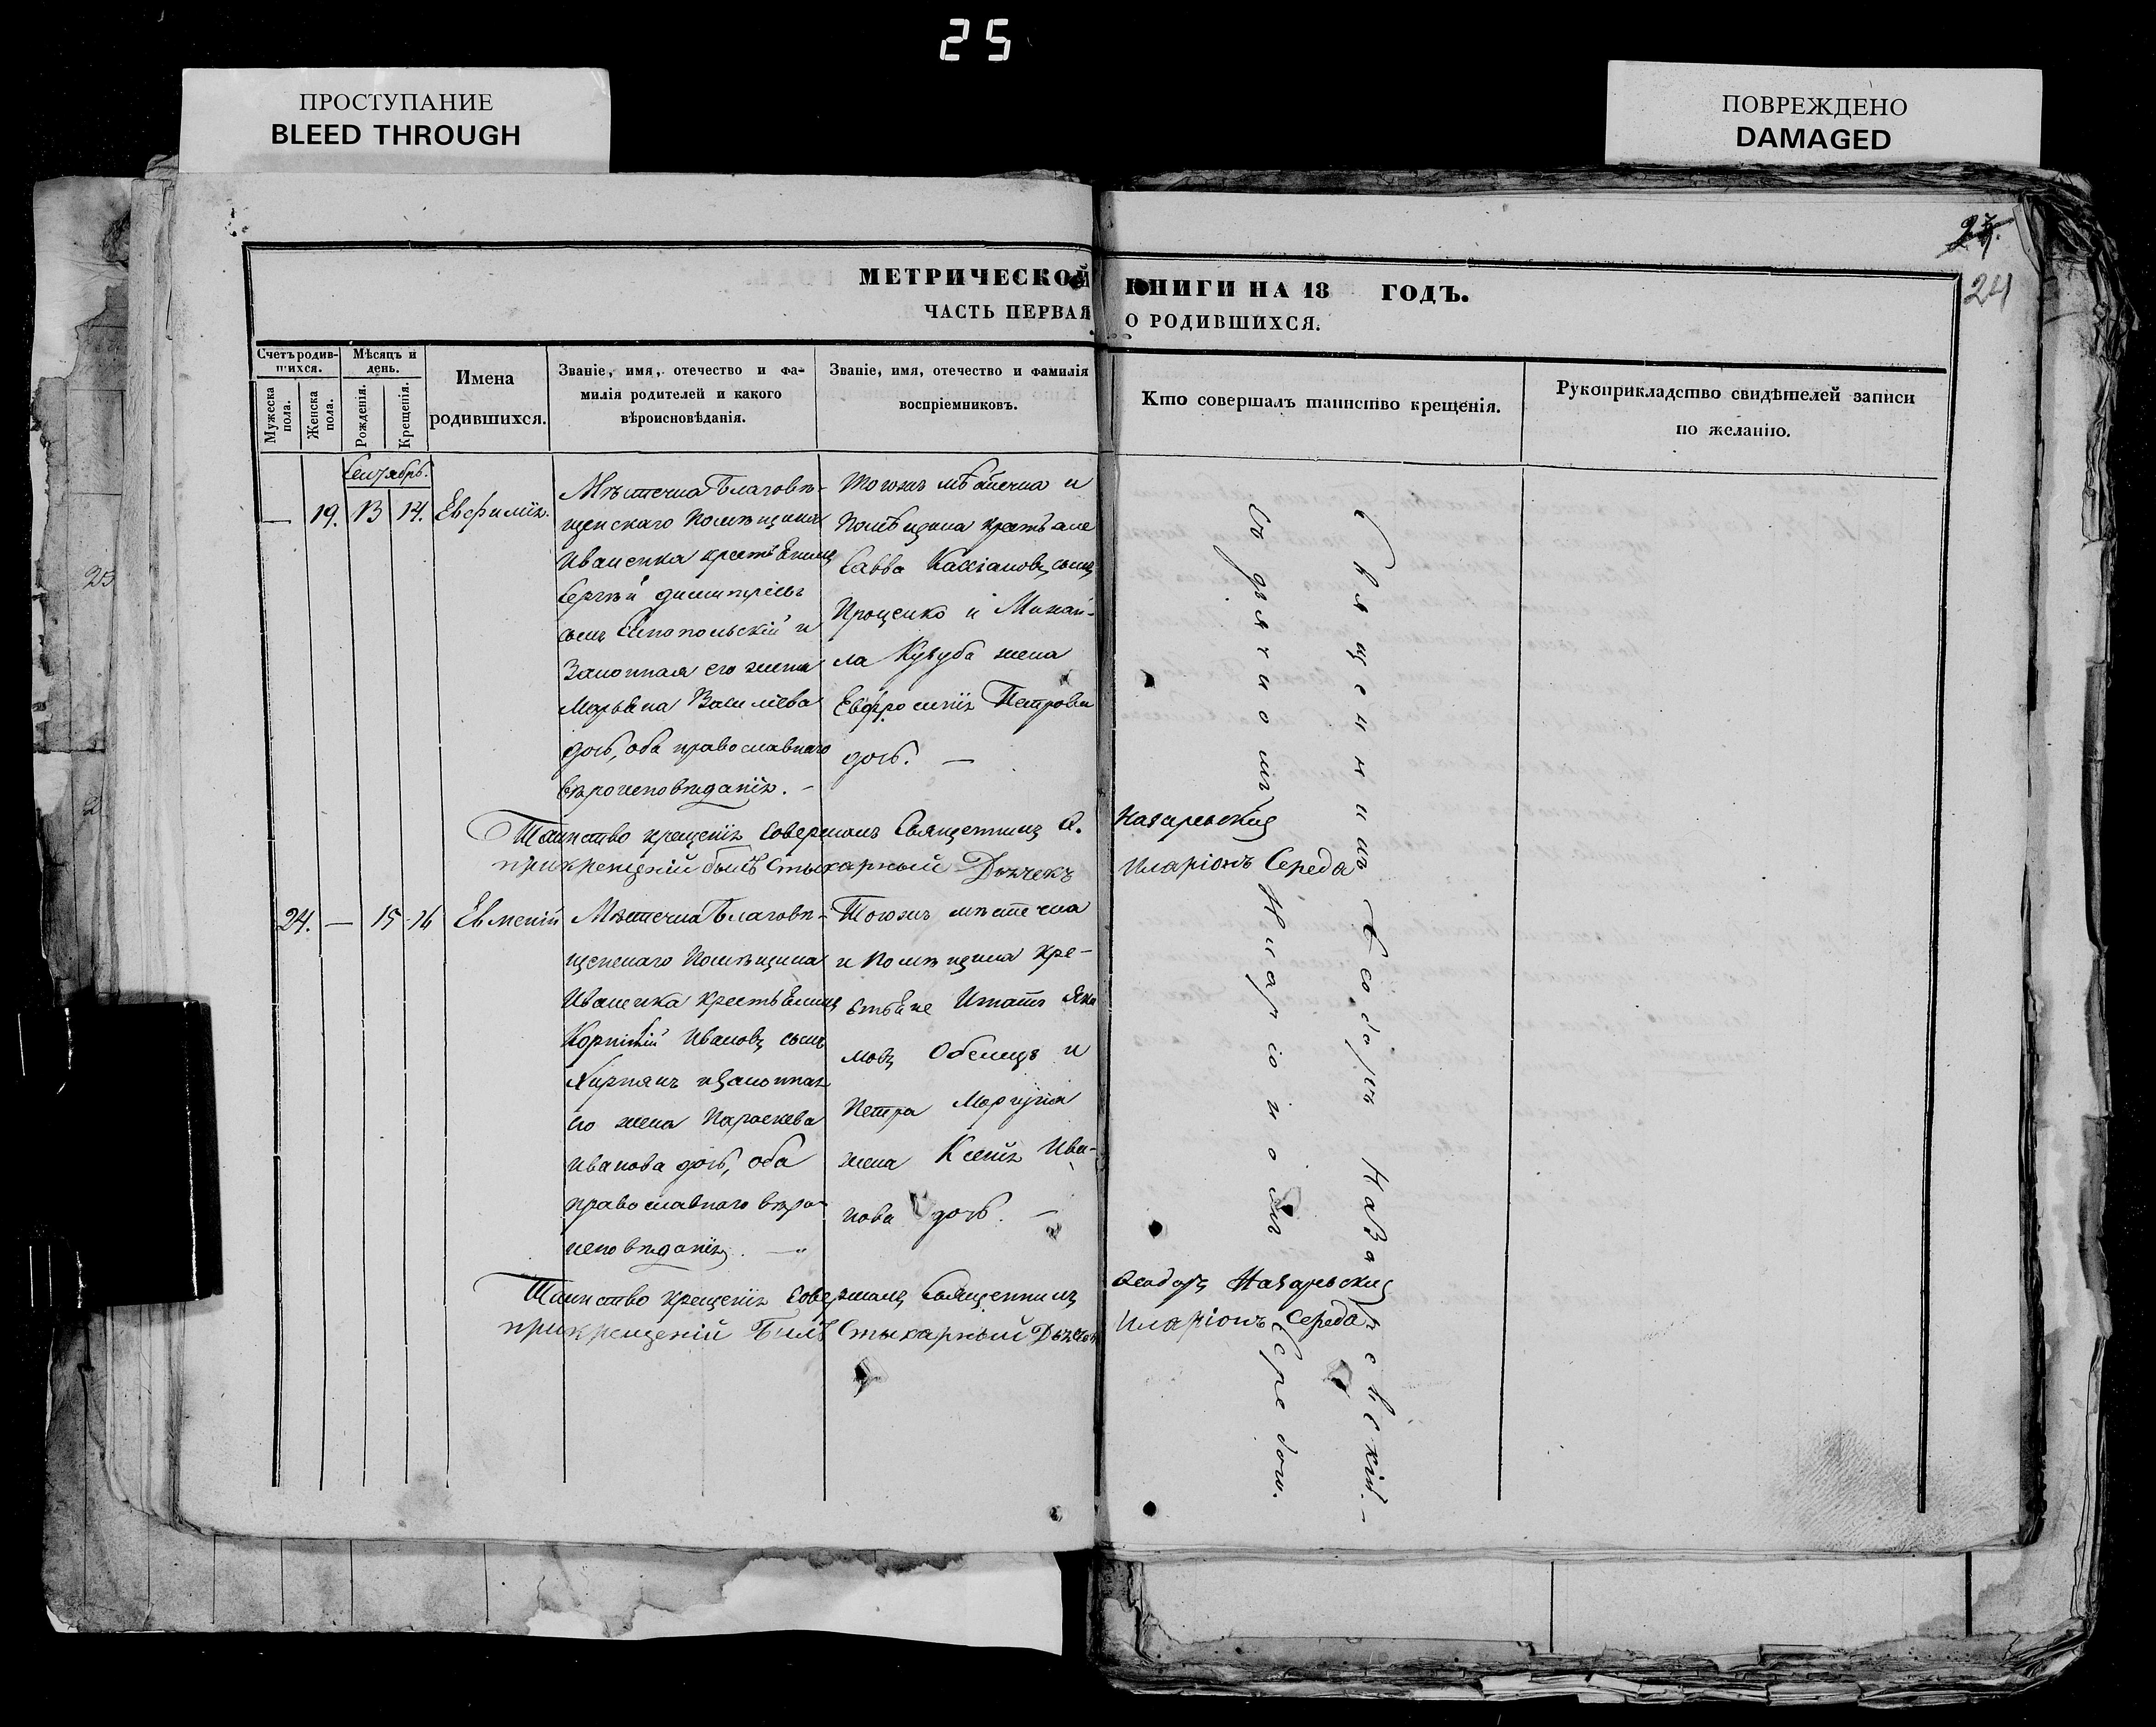 25
ПРОСТУПАНИЕ
BLEED THROUGH
ПОВРЕЖДЕНО
DAMAGED
24
МЕТРИЧЕСКОЙ КНИГИ НА 18 ГОДЪ.
ЧАСТЬ ПЕРВАЯ О РОДИВШИХСЯ.
Счетъ родившихся.
Мужеска пола.
Женска пола.
Мѣсяцъ и день.
Рожденія.
Крещенія.
Имена
родившихся.
Званіе, имя, отечество и фа-
милія родителей и какого
вѣроисповѣданія.
Званіе, имя, отечество и фамилія
воспріемниковъ.
Кто совершалъ таинство крещенія.
Рукоприкладство свидѣтелей записи
по желанію.
Сентябрь.
— 19. 13 14. Евфимія.
Мѣстечка Благовѣ-
щенскаго Помѣщика
Иваненка крестьянинъ
Сергѣй Димитріевъ
сынъ и
Законная его жена
Марьяна Василіева
дочь, оба православнаго
вѣроисповѣданія. —
Тогожъ мѣстечка и
Помѣщика крестьяне
Савва Кассіановъ сынъ
Проценко и Михаи-
ла жена
Евфросинія Петрова
дочь. —
Таинство крещенія Совершалъ Священникъ Ѳ. Назаревскій
при крещеніи былъ Стихарный Дьячекъ Иларіонъ Середа
24. — 15 16 Евмений
Мѣстечка Благовѣ-
щенскаго Помѣщика
Иваненка крестьянинъ
Корнилій Ивановъ сынъ
и Законная
его жена Параскева
Иванова дочь, оба
православнаго вѣро-
исповѣданія. —
Тогожъ мѣстечка
и Помѣщика кре-
стьяне Игнатъ Яки
мовъ и
Петра
жена Ксенія Ива-
нова дочь. —
Таинство крещенія Совершалъ Священникъ Ѳеодоръ Назаревскій
при крещеніи Былъ Стихарный Дьячекъ Иларіонъ Середа
Священникъ Ѳеодоръ Назаревскій. —
Съ дьячкомъ Иларіономъ Середою.